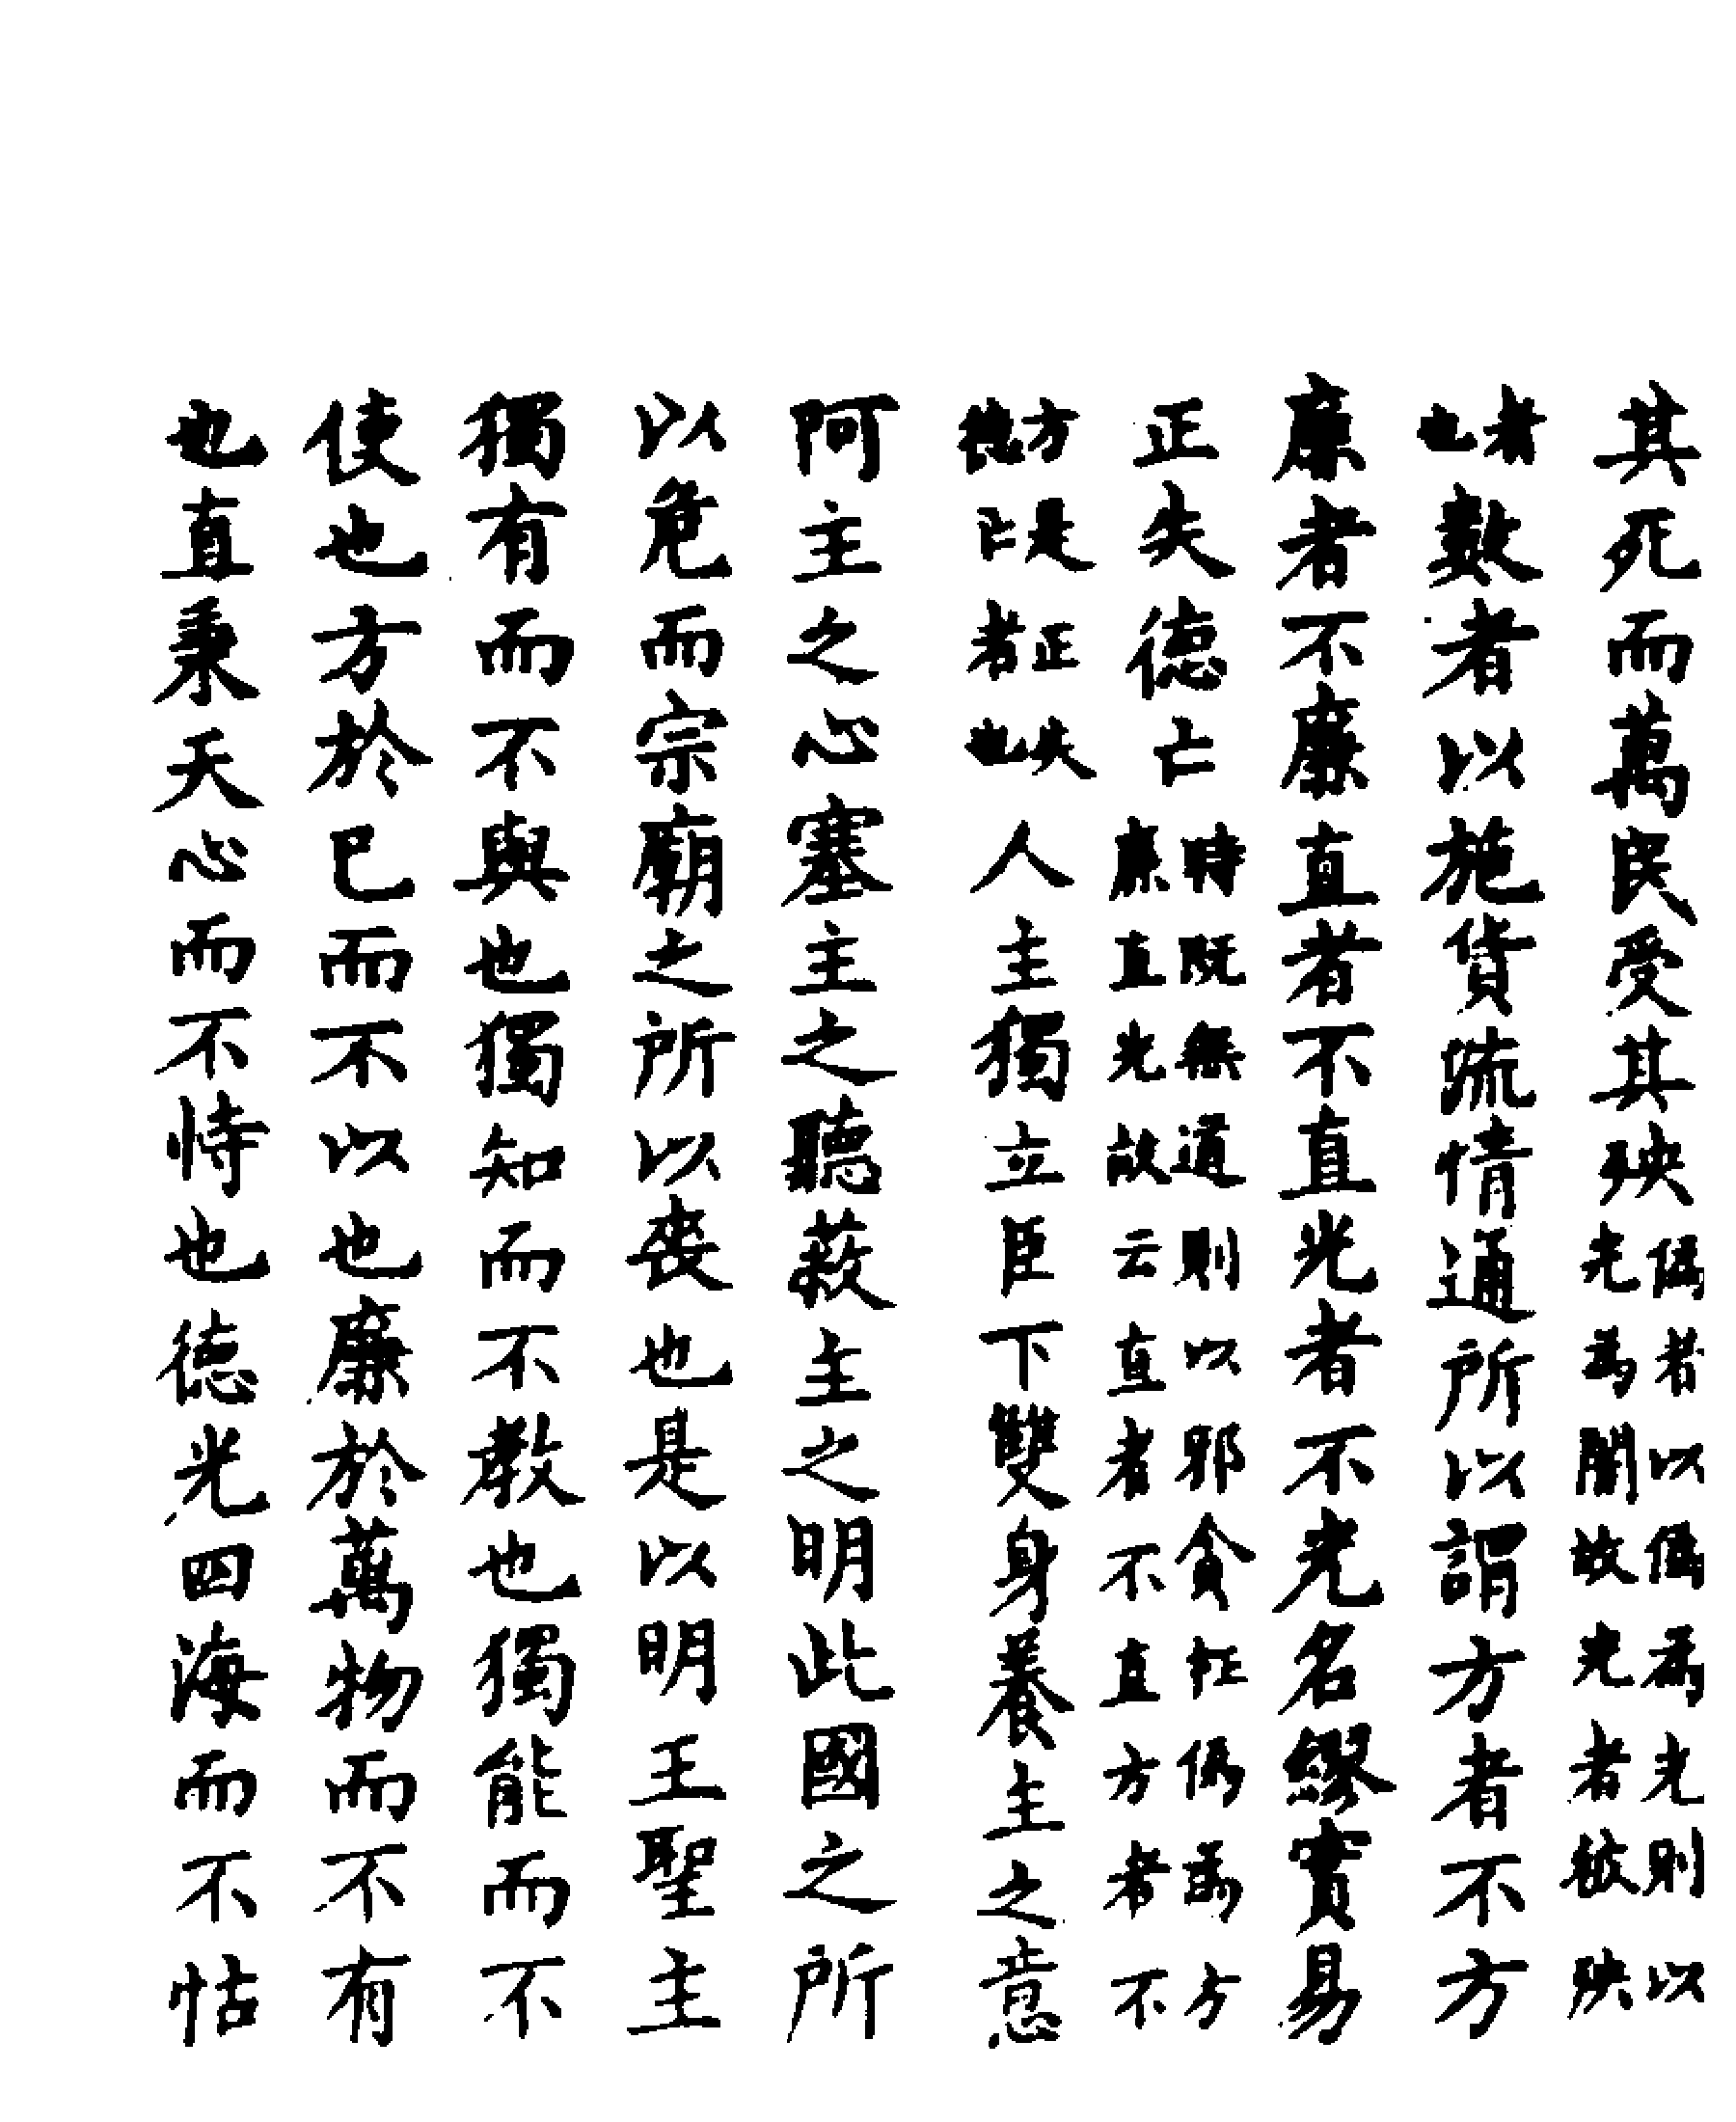 其死而萬民受其殃偽者以偽爲光則以光爲闇故光者被殃
者也數者以施貨流情通所以謂方者不方
廉者不廉直者不直光者不光名繆實易
正失德亡時既無道則以邪貪枉偽爲方廉直光故云直者不直方者不
方是正失德亡者也人主獨立臣下雙身養主之意
阿主之心塞主之聽蔽主之明此國之所
以危而宗廟之所以喪也是以明王聖主
獨有而不與也獨知而不教也獨能而不
使也方於巳而不以也廉於萬物而不有
也直秉天心而不恃也德光四海而不怙